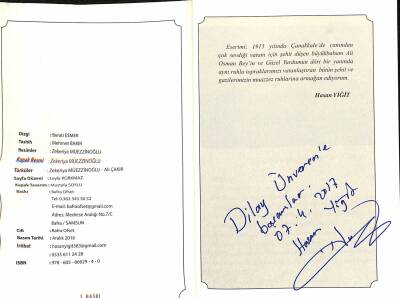 Dizgi : Berati ESMER
Tashih : Mehmet BAKIR
Resimler : Zekeriya MÜEZZİNOĞLU
Kapak Resmi : Zekeriya MÜEZZİNOĞLU
Türküler : Zekeriya MÜEZZİNOĞLU - Ali ÇAKIR
Sayfa Düzeni : Leyla KORKMAZ
Kapak Tasarım : Mustafa SOYLU
Baskı : Bafra Ofset
Tel: 0.362 543 58 52
E-mail: bafraofset@gmail.com
Adres: Medrese Aralığı No:7/C
Bafra / SAMSUN
Cilt : Bafra Ofset
Basım Tarihi : Aralık 2016
İrtibat : hasanyigit383@gmail.com
: 0535 611 24 28
ISBN : 978 - 605 - 66629 - 4 - 0
2. BASKI
Eserimi; 1915 yılında Çanakkale'de canından
çok sevdiği vatanı için şehit düşen büyükbabam Ali
Osman Bey'in ve Güzel Yurdumun dört bir yanında
aynı ruhla topraklarımızı vatanlaştıran bütün şehit ve
gazilerimizin muazzez ruhlarına armağan ediyorum.
Hasan YİĞİT
Dilay Ünveren'e
başarılar.
07.4.2017
Hasan Yiğit